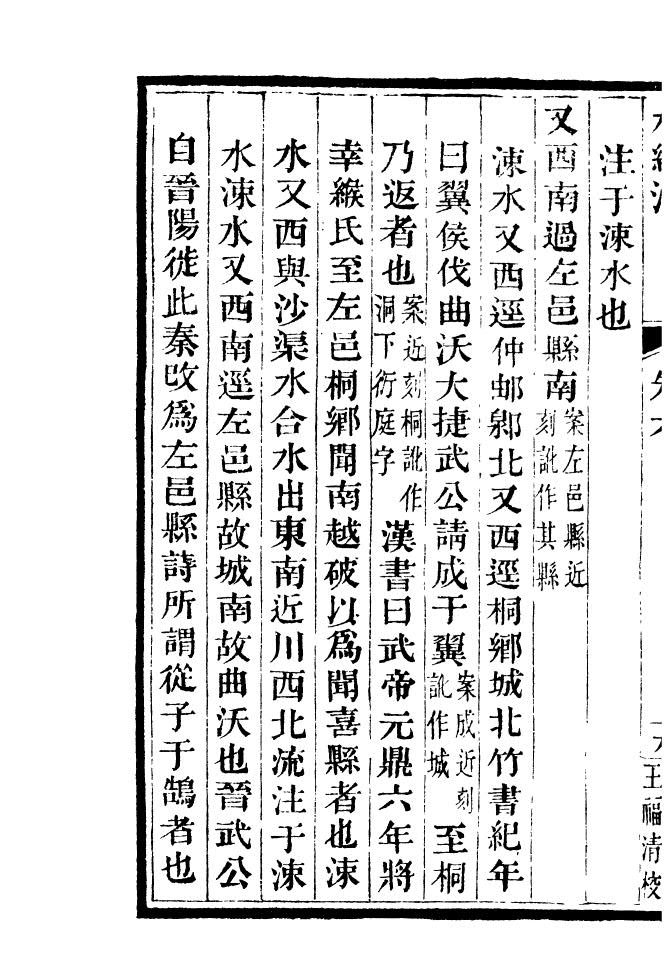 注于涑水也
又西南過左邑縣南案左邑縣近刻訛作其縣
涑水又西逕仲郵郻北又西逕桐鄉城北竹書紀年
曰翼侯伐曲沃大捷武公請成于翼案成近刻訛作城至桐
乃返者也案近刻桐訛作洞下衍庭字漢書曰武帝元鼎六年將
幸緱氏至左邑桐鄉聞南越破以爲聞喜縣者也涑
水又西與沙渠水合水出東南近川西北流注于涑
水涑水又西南逕左邑縣故城南故曲沃也晉武公
自晉陽徙此秦改爲左邑縣詩所謂從子于鵠者也
王福清校